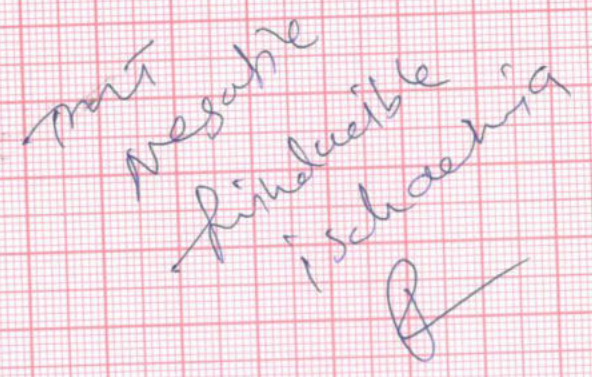 TMT
Negative
for inducible
ischaemia